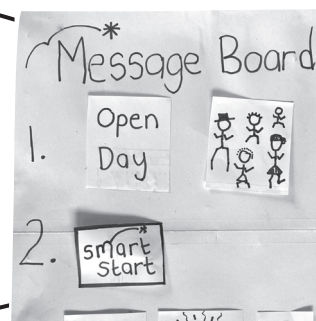 Message Board
1.
Open
Day
2.
smart
start